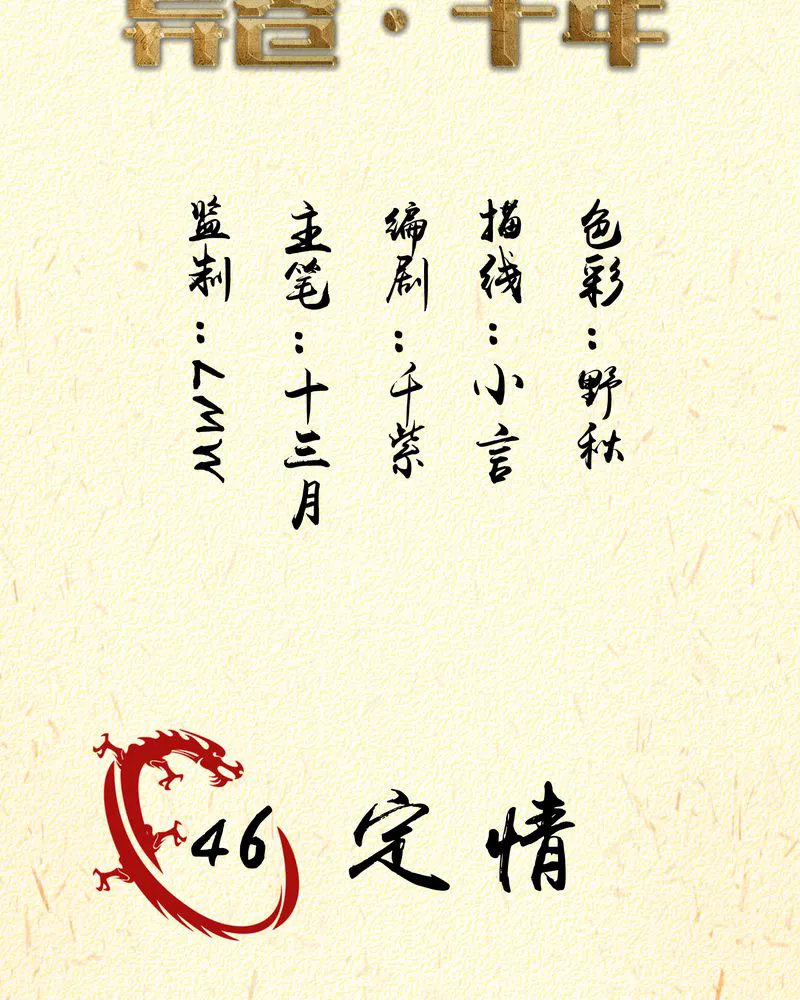 千年
色彩：野秋
描线：小言
编剧：千紫
主笔：十三月
监制：7MMW
46 定情